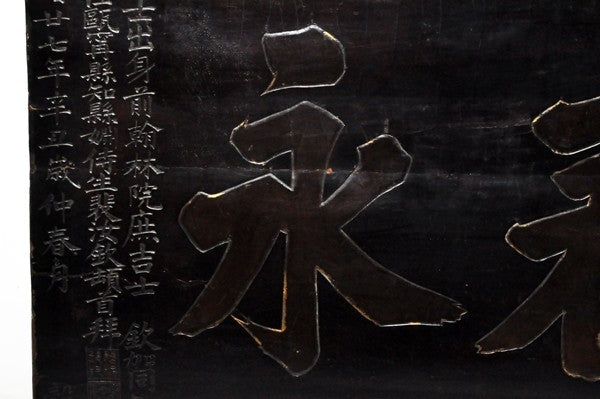 永
士出身前翰林院庶吉士 欽加同
甌寧縣知縣姻侍生裴汝欽頓首拜
廿七年辛丑歲仲春月